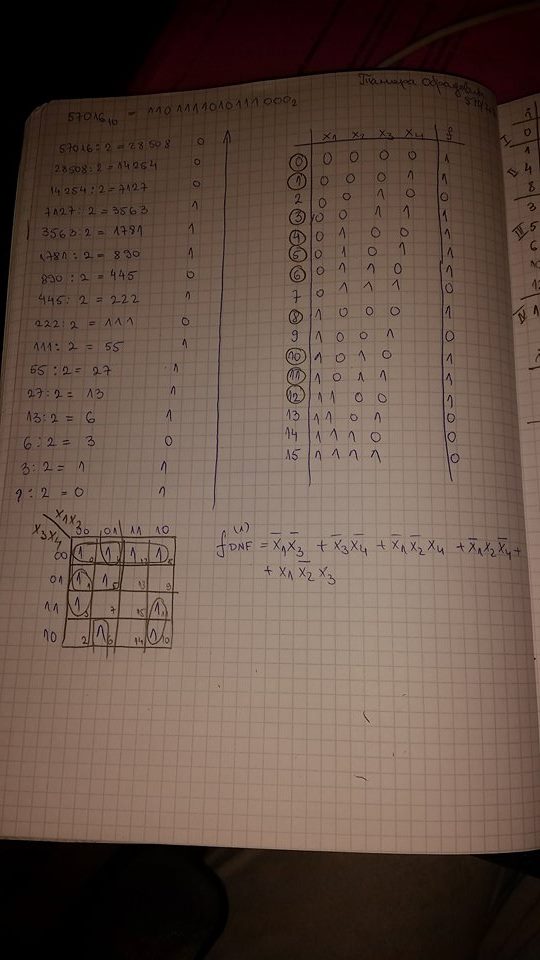 57016₁₀ = 1101111010111000₂
57016 : 2 = 28508 0
28508 : 2 = 14254 0
14254 : 2 = 7127 0
7127 : 2 = 3563 1
3563 : 2 = 1781 1
1781 : 2 = 890 1
890 : 2 = 445 0
445 : 2 = 222 1
222 : 2 = 111 0
111 : 2 = 55 1
55 : 2 = 27 1
27 : 2 = 13 1
13 : 2 = 6 1
6 : 2 = 3 0
3 : 2 = 1 1
1 : 2 = 0 1
x₁ x₂ x₃ x₄ f
0 0 0 0 0 1
1 0 0 0 1 1
2 0 0 1 0 0
3 0 0 1 1 1
4 0 1 0 0 1
5 0 1 0 1 1
6 0 1 1 0 1
7 0 1 1 1 0
8 1 0 0 0 1
9 1 0 0 1 0
10 1 0 1 0 1
11 1 0 1 1 1
12 1 1 0 0 1
13 1 1 0 1 0
14 1 1 1 0 0
15 1 1 1 1 0
x₃x₄
00 01 11 10
00 1 1 1 1
01 1 1 5 13 9
11 1 3 7 15 1
10 2 1 6 14 1 10
f DNF (1) = x̄₁x̄₃ + x̄₃x̄₄ + x̄₁x̄₂x₄ + x̄₁x₂x̄₄ +
+ x₁x̄₂x₃